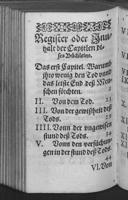 Register oder Inn-
halt der Capiteln di-
ses Büchleins.
Das erst Capitel. Warumb
ihro wenig den Tod vnnd
das letste End deß Men-
schen förchten.
II. Von dem Tod. 23
III. Von der gewißheit deß
Tods.
IIII. Vonn der vngewissen
stund deß Tods.
V. Vonn den versuchun-
gen in der stund deß Tods.
44
VI. Von